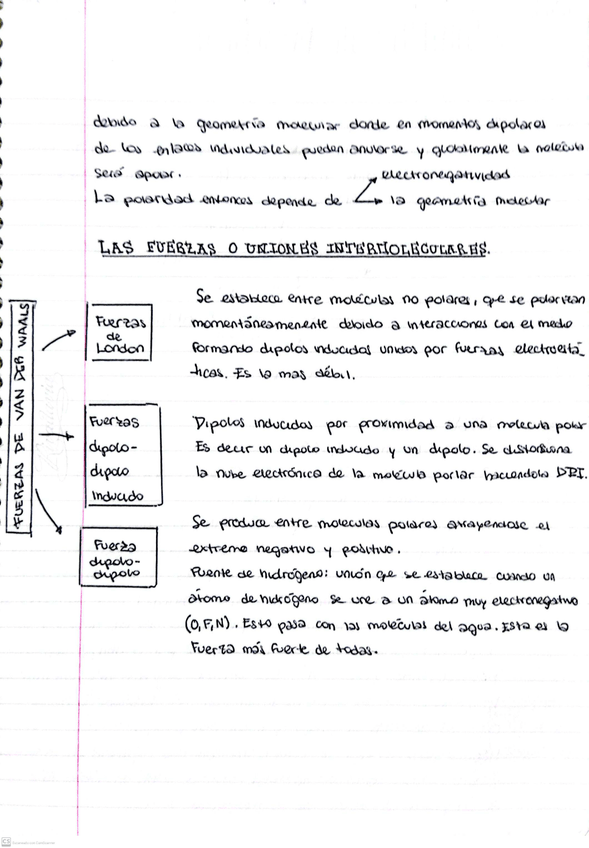 debido a la geometría molecular donde en momentos dipolares
de los enlaces individuales pueden anularse y globalmente la molécula
será apolar.
electronegatividad
La polaridad entonces depende de
la geometría molecular
LAS FUERZAS O UNIONES INTERMOLECULARES.
FUERZAS DE VAN DER WAALS
Fuerzas
de
London
Se establece entre moléculas no polares, que se polarizan
momentáneamenente debido a interacciones con el medio
formando dipolos inducidos unidos por fuerzas electrostá-
ticas. Es la mas débil.
Fuerzas
dipolo-
dipolo
inducido
Dipolos inducidos por proximidad a una molécula polar
Es decir un dipolo inducido y un dipolo. Se distorsiona
la nube electrónica de la molécula porlar haciendola DPI.
Fuerza
dipolo-
dipolo
Se produce entre moleculas polares atrayendose el
extremo negativo y positivo.
Puente de hidrógeno: unión que se establece cuando un
átomo de hidrógeno se une a un átomo muy electronegativo
(O,F,N). Esto pasa con las moléculas del agua. Esta es la
fuerza más fuerte de todas.
CS